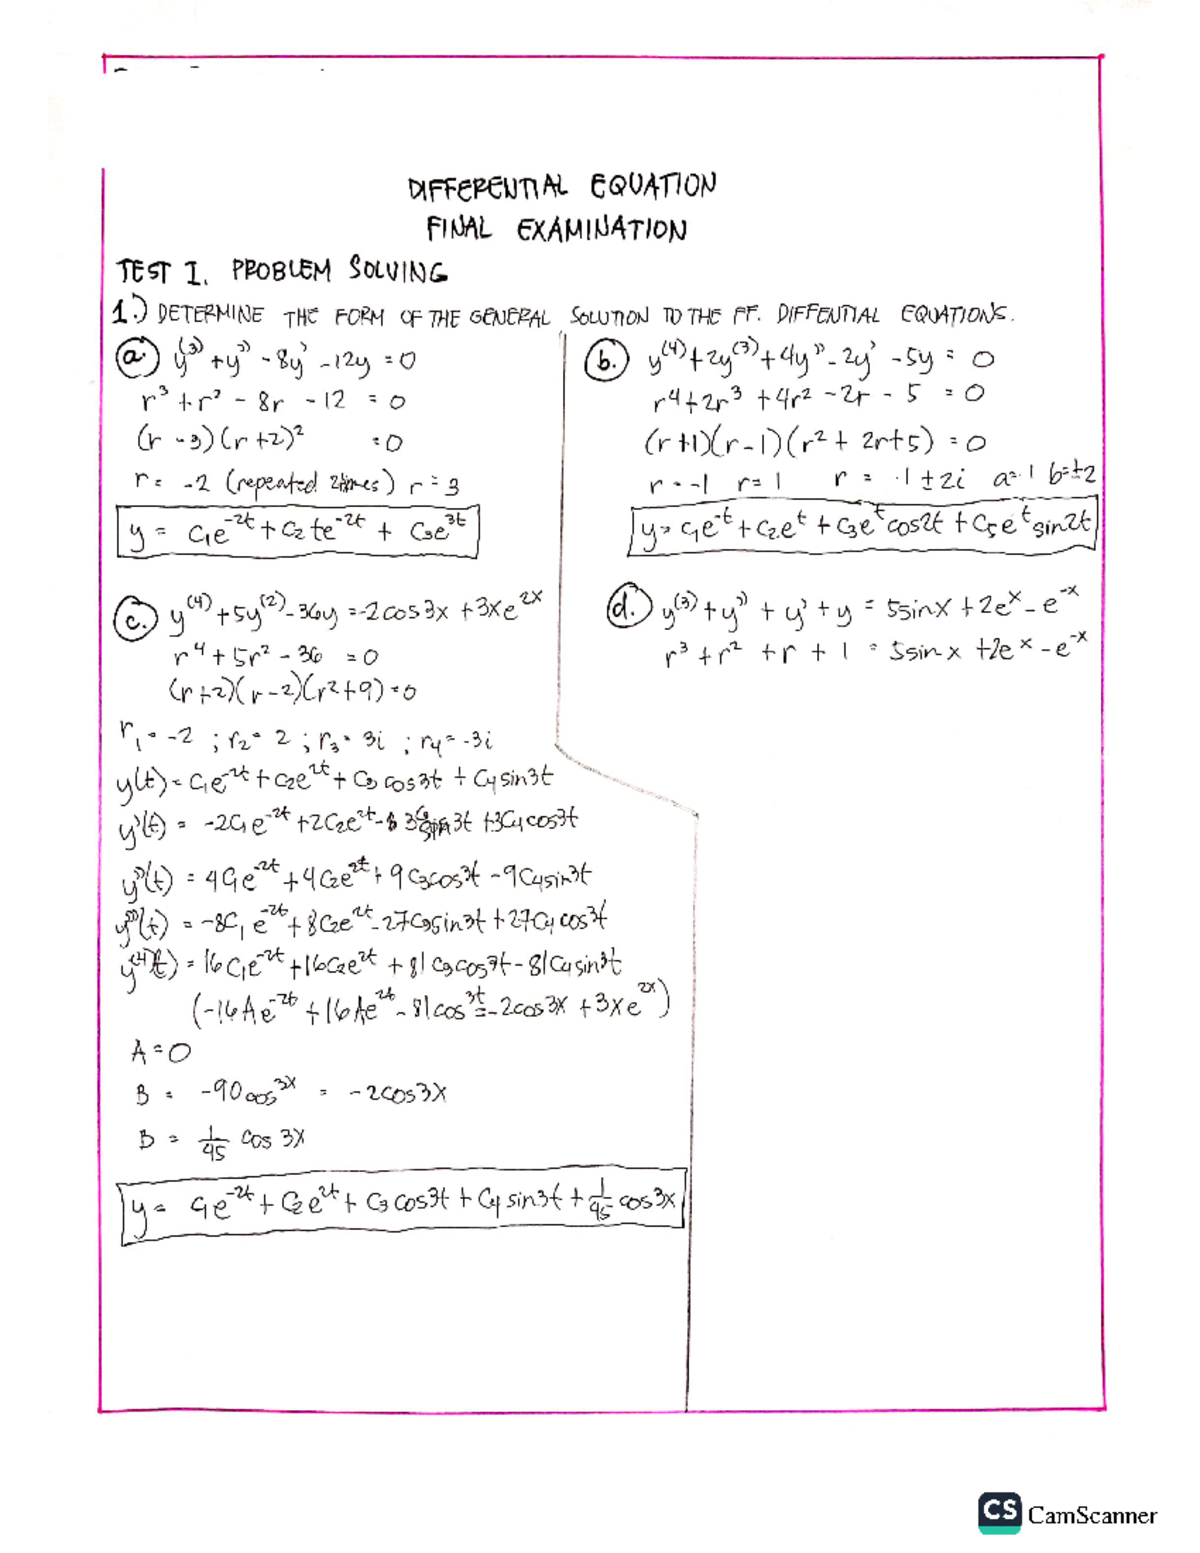 DIFFERENTIAL EQUATION
FINAL EXAMINATION
TEST I. PROBLEM SOLVING
1.) DETERMINE THE FORM OF THE GENERAL SOLUTION TO THE FF. DIFFENTIAL EQUATIONS.
a. y⁽³⁾ + y'' - 8y' - 12y = 0
r³ + r² - 8r - 12 = 0
(r - 3)(r + 2)² = 0
r = -2 (repeated 2times) r = 3
y = C₁e^-2t + C₂te^-2t + C₃e^3t
b. y⁽⁴⁾ + 2y⁽³⁾ + 4y'' - 2y' - 5y = 0
r⁴ + 2r³ + 4r² - 2r - 5 = 0
(r+1)(r-1)(r² + 2r+5) = 0
r = -1 r = 1 r = -1 ± 2i a=-1 b=±2
y = C₁e^-t + C₂e^t + C₃e^t cos2t + C₅e^t sin2t
c. y⁽⁴⁾ + 5y⁽²⁾ - 36y = -2cos3x + 3xe^2x
r⁴ + 5r² - 36 = 0
(r+2)(r-2)(r²+9) = 0
r₁ = -2 ; r₂ = 2 ; r₃ = 3i ; r₄ = -3i
y(t) = C₁e^-2t + C₂e^2t + C₃cos3t + C₄sin3t
y'(t) = -2C₁e^-2t + 2C₂e^2t - 3C₃sin3t + 3C₄cos3t
y''(t) = 4C₁e^-2t + 4C₂e^2t + 9C₃cos3t - 9C₄sin3t
y'''(t) = -8C₁e^-2t + 8C₂e^2t - 27C₃sin3t + 27C₄cos3t
y⁽⁴⁾(t) = 16C₁e^-2t + 16C₂e^2t + 81C₃cos3t - 81C₄sin3t
(-16Ae^-2t + 16Ae^2t - 81cos^3t = -2cos3x + 3xe^2x)
A = 0
B = -90cos^3x = -2cos3x
B = 1/45 cos 3x
y = C₁e^-2t + C₂e^2t + C₃cos3t + C₄sin3t + 1/45 cos3x
d. y⁽³⁾ + y'' + y' + y = 5sinx + 2e^x - e^-x
r³ + r² + r + 1 = 5sinx + 2e^x - e^-x
CS CamScanner